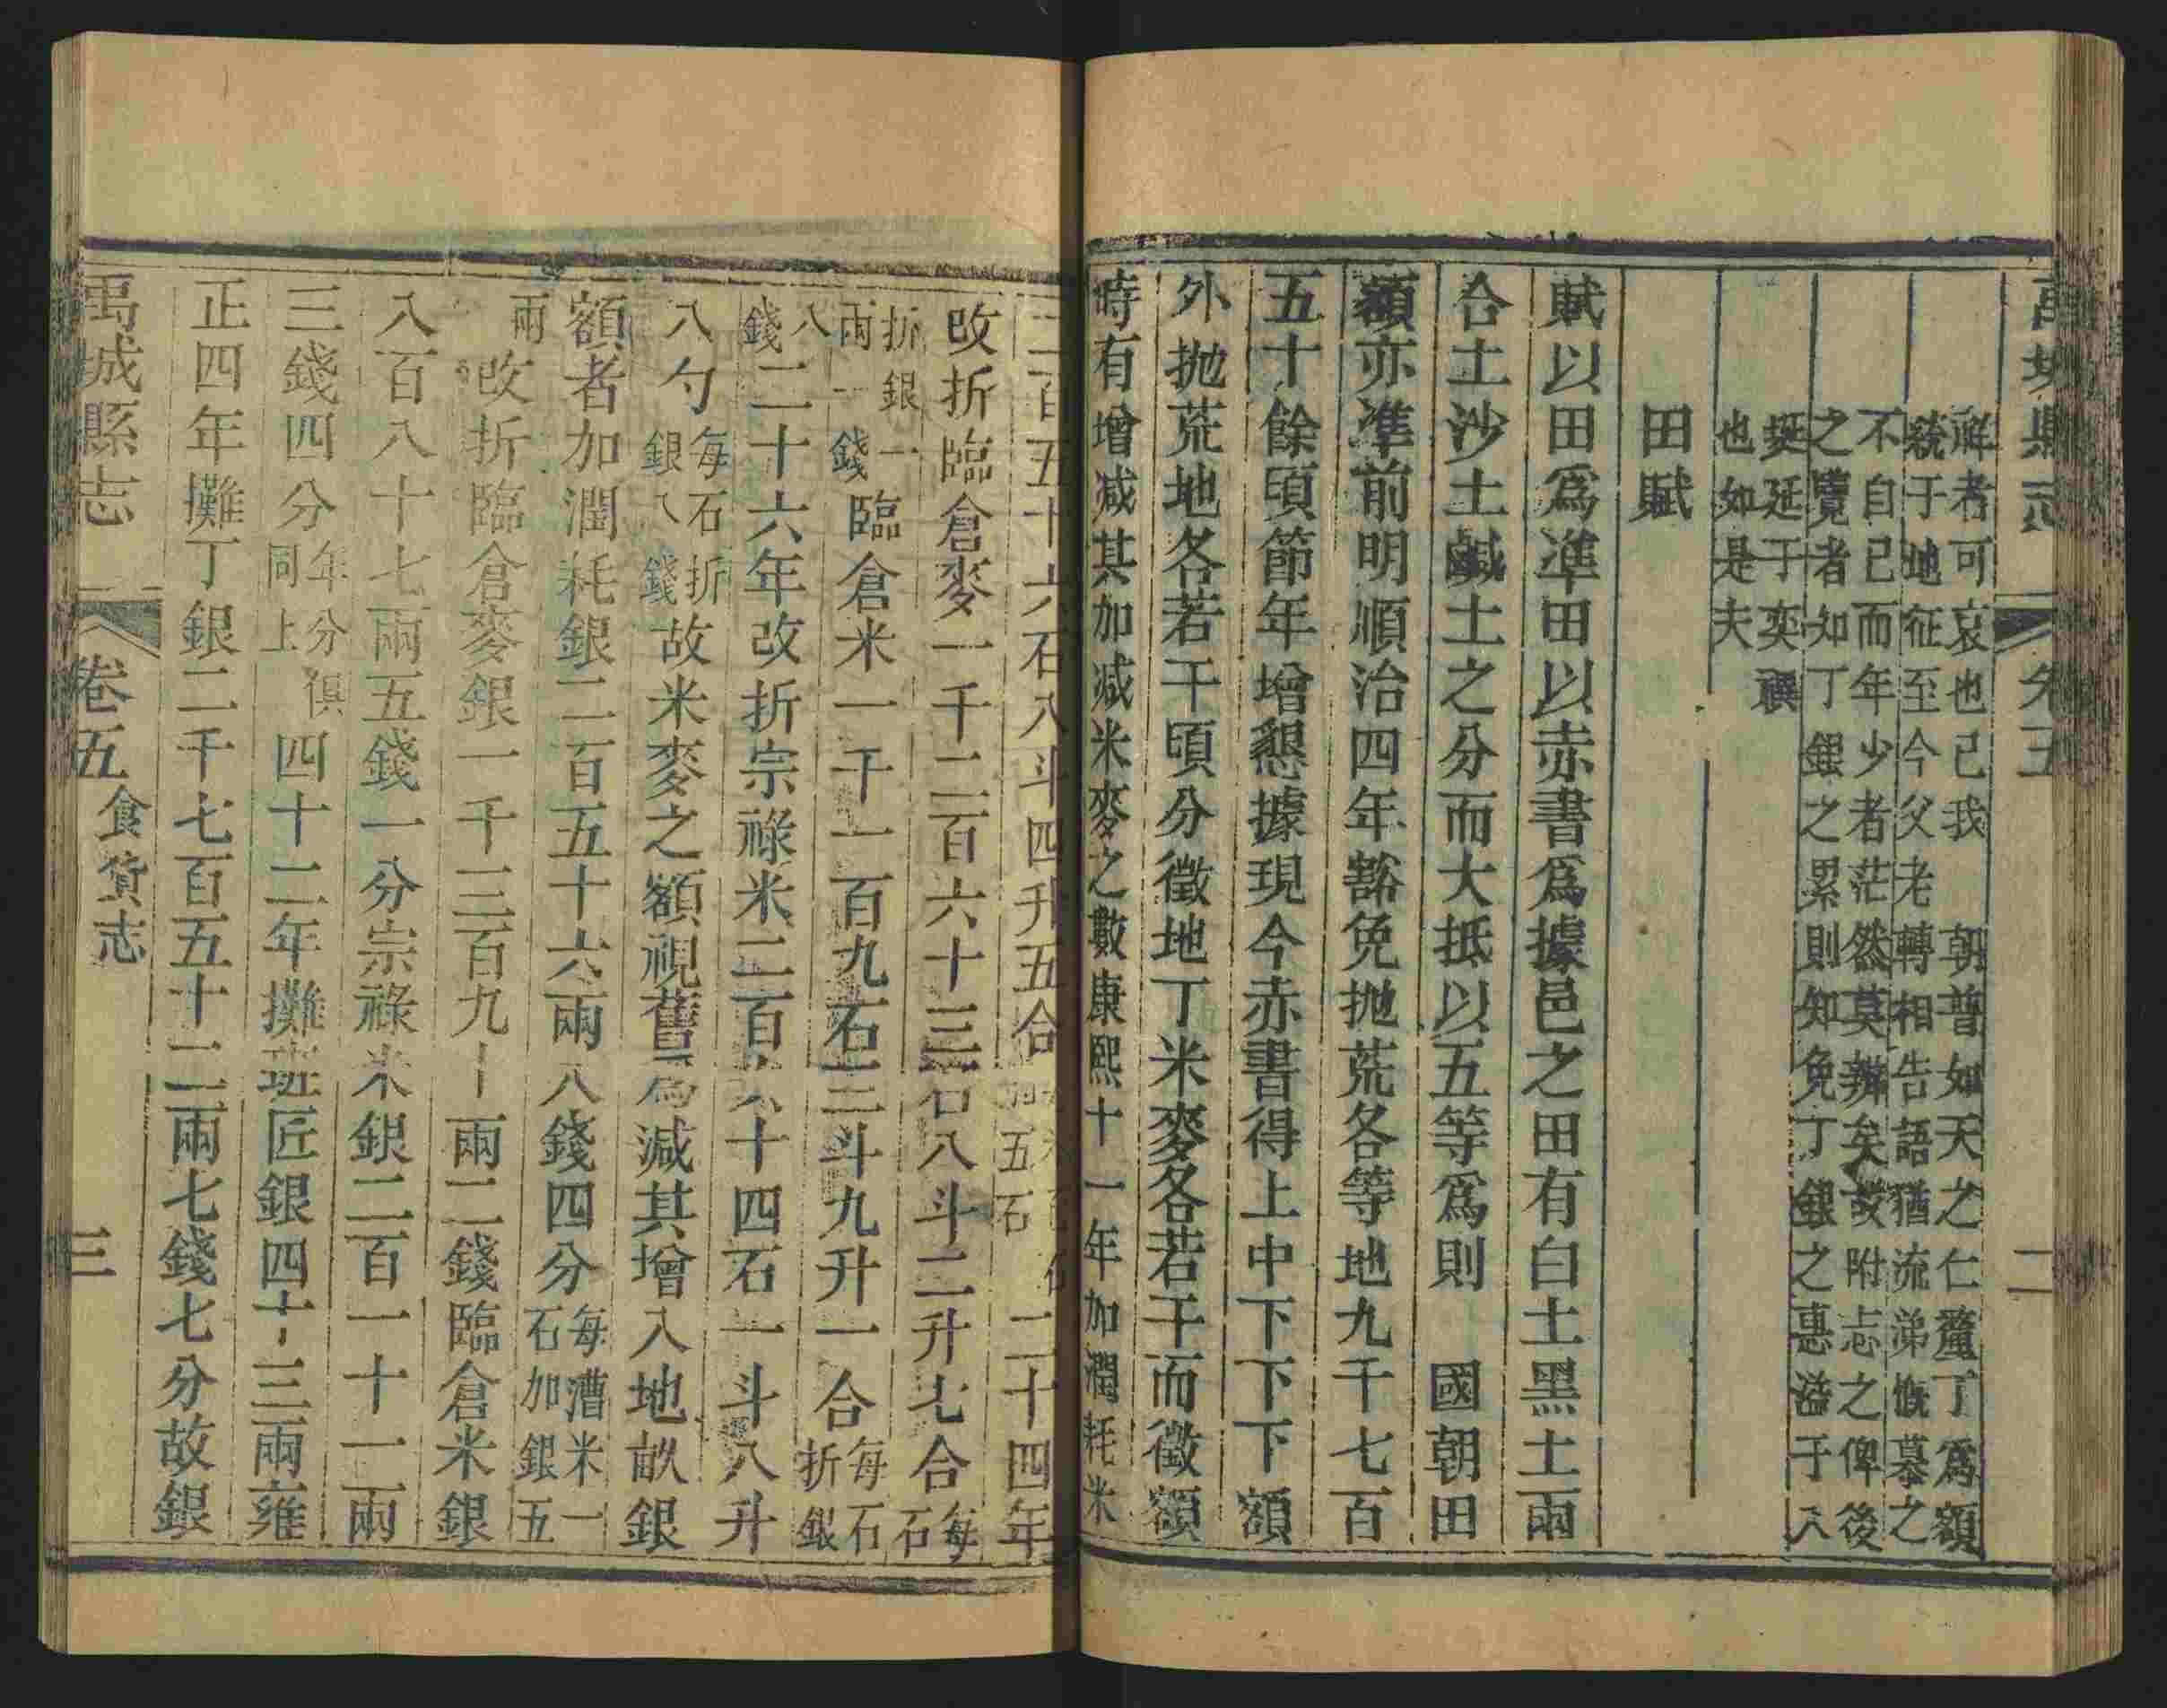 禹城縣志 卷五 二
解者可哀也已我 朝普如天之仁釐丁爲額
籠于地征至今父老轉相告語猶流涕慨慕之
不自已而年少者茫然莫辨矣故附志之俾後
之覽者知丁銀之累則知免丁銀之惠溢于人
挻延于奕禩
也如是夫
田賦
賦以田爲準田以赤書爲據邑之田有白土黑土兩
合土沙土鹹土之分而大抵以五等爲則 國朝田
額亦準前明順治四年豁免拋荒各等地九千七百
五十餘頃節年增懇據現今赤書得上中下下下額
外拋荒地各若干頃分徵地丁米麥各若干而徵額
時有增減其加減米麥之數康熙十一年加潤耗米
二百五十六石八斗四升五合 五石 二十四年
改折臨倉麥一千二百六十三石八斗二升七合每石
折銀一
兩一錢臨倉米一千一百九石三斗九升一合每石折銀
八
錢二十六年改折宗祿米二百六十四石一斗八升
八勺每石折銀八錢故米麥之額視舊爲減其增入地畝銀
額者加潤耗銀二百五十六兩八錢四分每漕米一石加銀五
兩改折臨倉麥銀一千三百九十兩二錢臨倉米銀
八百八十七兩五錢一分宗祿米銀二百一十一兩
三錢四分年分俱同上四十二年攤班匠銀四十三兩雍
正四年攤丁銀二千七百五十二兩七錢七分故銀
禹城縣志 卷五 食貨志 三